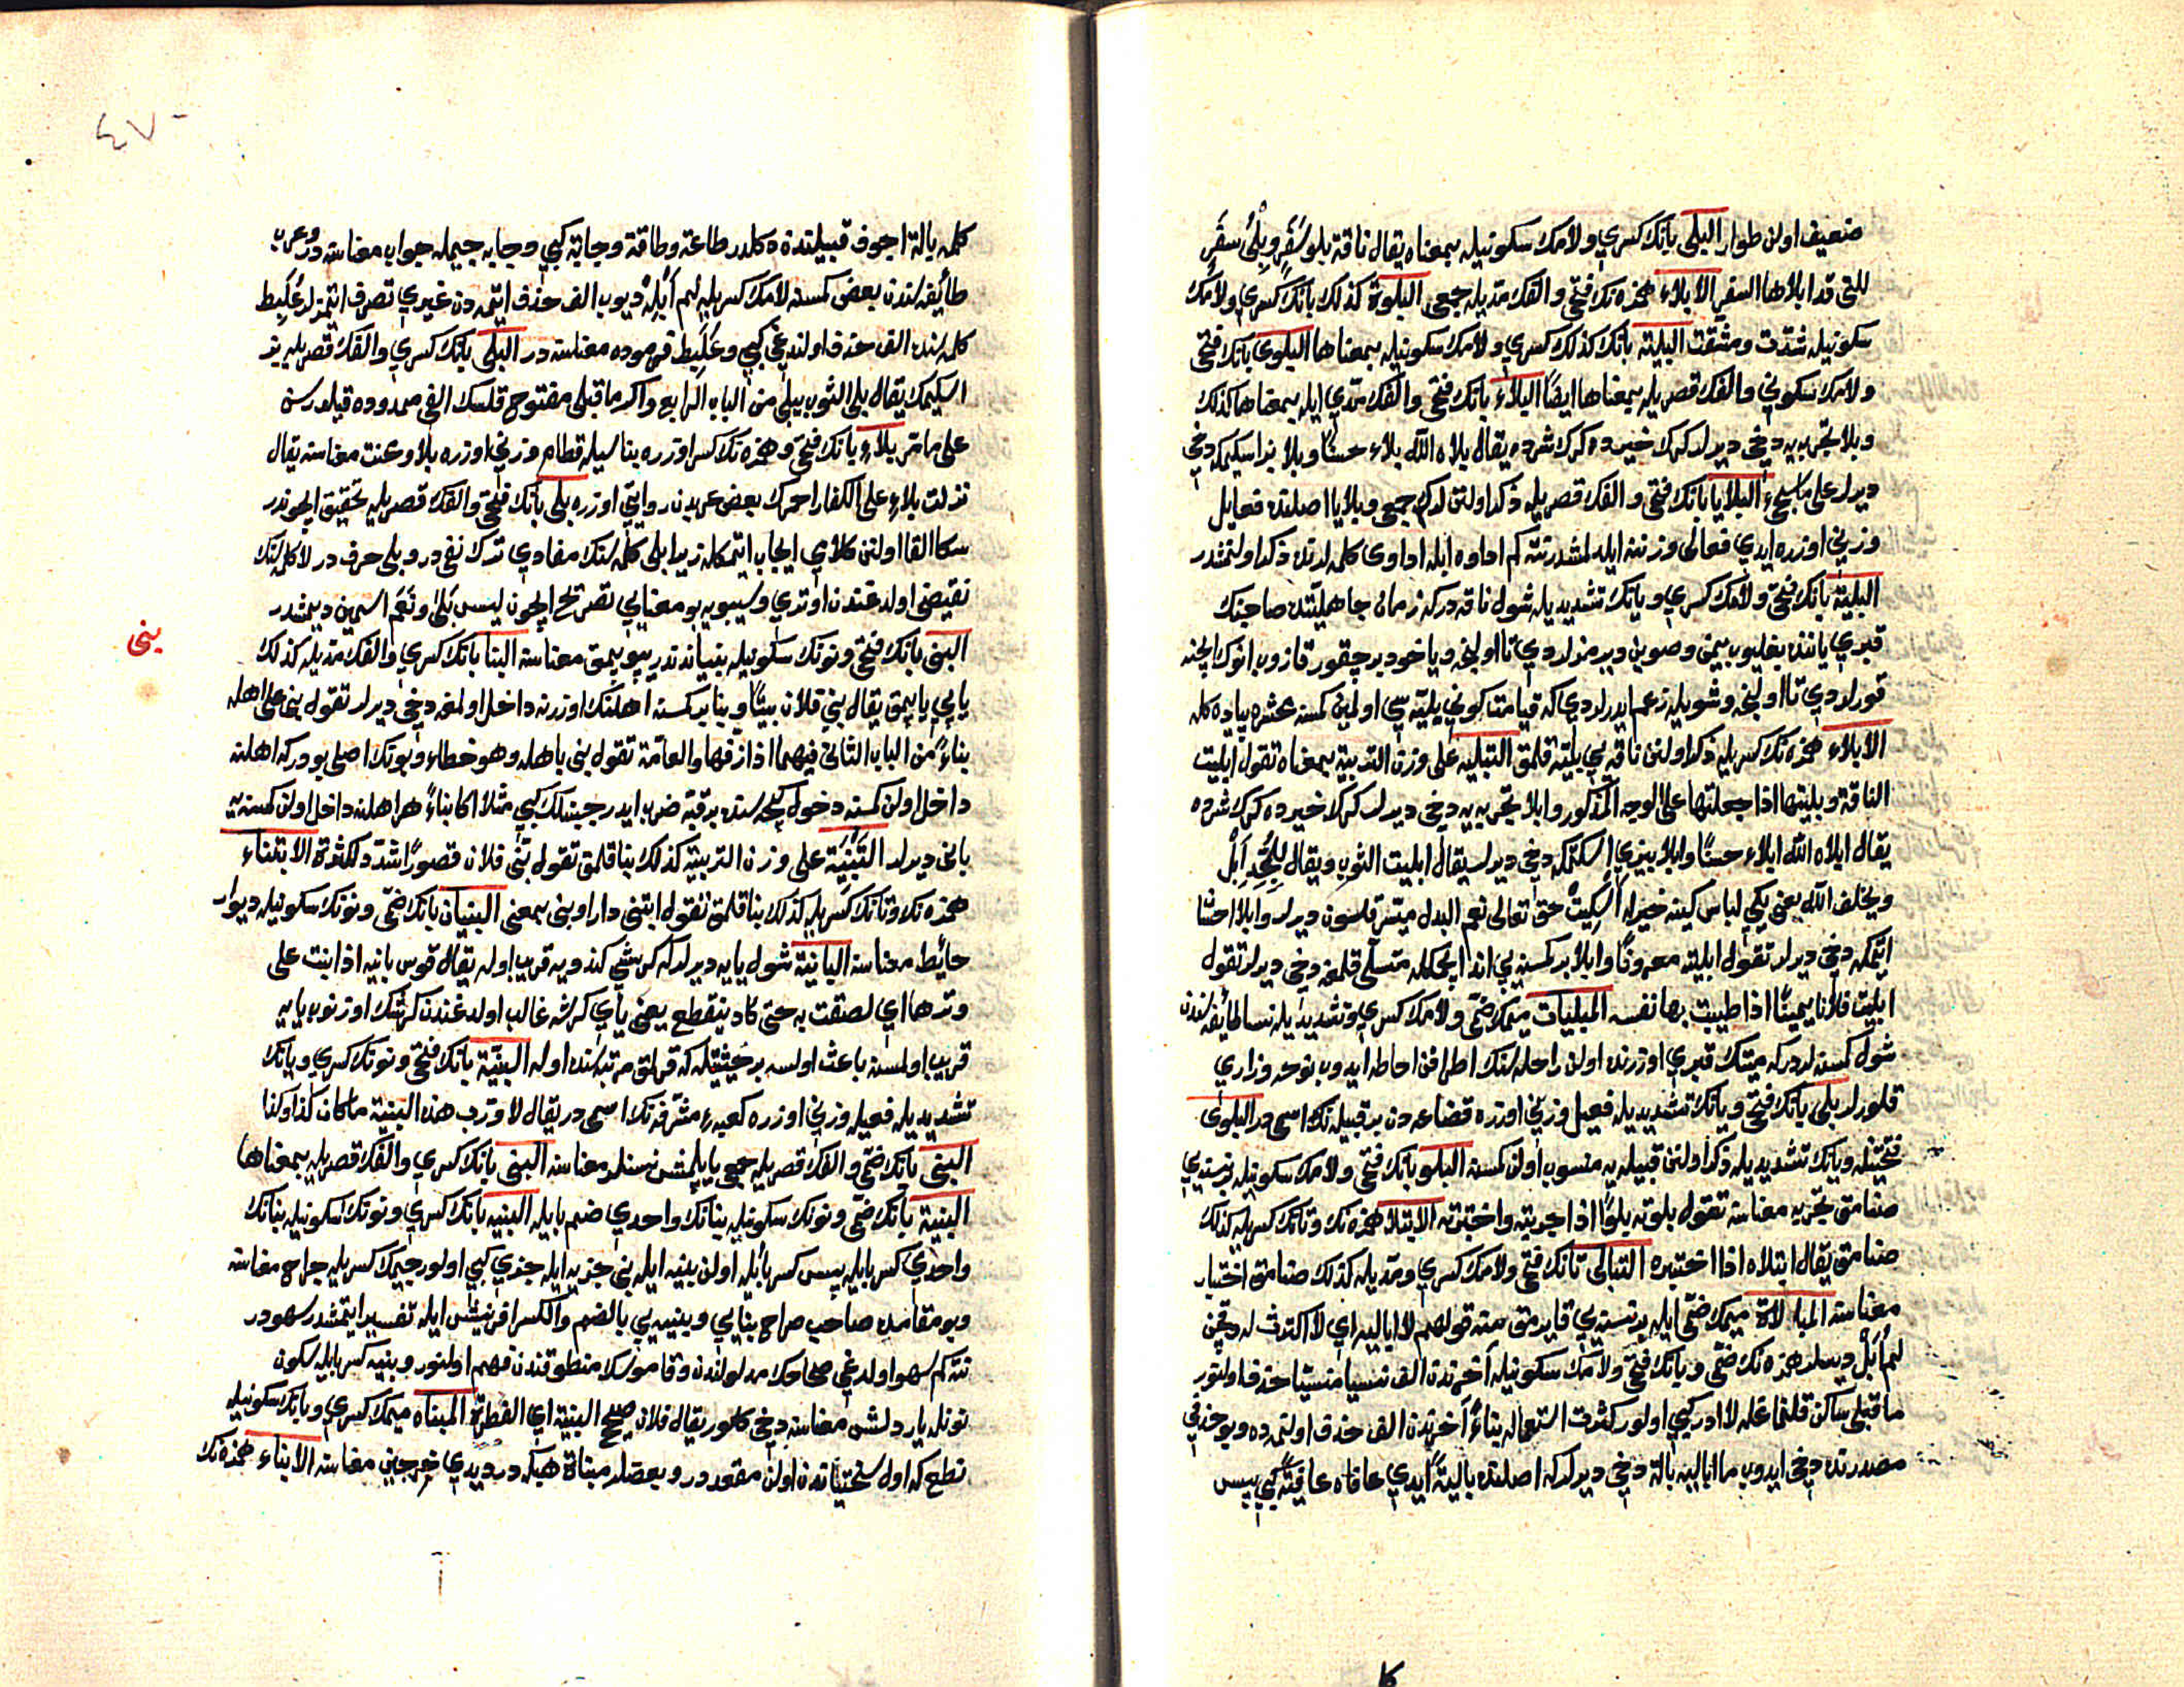 ضعيف اولن طوار البلی بانك كسری ولامك سكونيله بمعناه يقال ناقة بلو سَفَرٍ وبِلْیُ سفَرٍ
للتی قد ابلاها السفر الابلاء همزه نك فتحی والفك مديله جمعی البلوة كذلك بانك كسری ولامك
سكونيله شدت ومشقت البلية بانك كذلك كسری ولامك سكونيله بمعناها البلوی بانك فتحی
ولامك سكونی والفك قصريله بمعناها ايضًا البلاء بانك فتحی والفك مدی ايله بمعناها كذلك
وبلا تجربه يه دخی ديرلر كرك خيرده كرك شرده يقال بلاه الله بلاء حسنًا وبلا بز اسكيمكه دخی
ديرلر علی ما سيجیء البلايا بانك فتحی والفك قصريله ذكر اولنن لرك جمعی وبلايا اصلنده فعايل
وزنی اوزره ايدی فعالی وزننه ايلدلمشدر نته كم اداوه ايله اداوی كلمه لرنده ذكر اولنمشدر
البلية بانك فتحی ولامك كسری ويانك تشديديله شول ناقه در كه زمان جاهليتده صاحبنك
قبری ياننده بغليوب ييمن وصوين ويرمزلردی تا اولنجه وياخود بر چقور قازوب انوك ايچنه
قورلردی تا اولنجه وشويله زعم ايدرلردی كه قيامت كونی بليه سی اولمين كمسنه محشره پياده كلور
الابلاء همزه نك كسريله ذكر اولنن ناقه يی بليه قلمق التبليه علی وزن التربية بمعناه تقول ابليت
الناقة وبليتها اذا جعلتها علی الوجه المذكور وابلا تجربه يه دخی ديرلر كرك خيرده كرك شرده
يقال ابلاه الله ابلاء حسنًا وابلا بيزی اسكتمكه دخی ديرلر يقال ابليت الثوب ويقال للمُجِدِّ اَبْلِ
ويخلف الله يعنی يكی لباس كينه خيرله اسكيت حق تعالی نعم البدل ميسر قلسون ديرلر وابلا احسان
ايتمكه دخی ديرلر تقول ابليته معروفًا وابلا بر كمسنه يی اند ايچمكله متسلی قلمغه دخی ديرلر تقول
ابليت فلانًا يمينًا اذا طيبت بها نفسه المبليات ميمك ضمی ولامك كسری وتشديديله نسا طائفه سندن
شول كمسنه لردر كه ميتك قبری اوزرنده اولن راحله سنك اطرافن احاطه ايدوب نوحه وزاری
قلورلر بلی بانك فتحی ويانك تشديديله فعيل وزنی اوزره قضاعه دن بر قبيله نك اسمی در البلوی
فتحتينله ويانك تشديديله ذكر اولنن قبيله يه منسوب اولن كمسنه البلو بانك فتحی ولامك سكونيله بر نسنه يی
صنامق تجربه معناسنه تقول بلوته بلوًا اذا جربته واختبرته الابتلا همزه نك وتانك كسريله كذلك
صنامق يقال ابتلاه اذا اختبره التبالی تانك فتحی ولامك كسری ومديله كذلك صنامق اختبار
معناسنه المبالاة ميمك ضمی ايله بر نسنه يی قايرمق منه قولهم لا اباليه ای لا اكترث له وقچن
لم اُبَلْ ديسلر همزه نك ضمی وبانك فتحی ولامك سكونيله آخرندن الف نسيا منسيا حذف اولنور
ما قبلی ساكن قلنماغله لا ادر كبی اولور كثرت استعماله بناءً آخرندن الف حذف اولنمده وبو حذفی
مصدرنده دخی ايدوب ما اباليه بالة دخی ديرلر كه اصلنده باليةً ايدی عافاه عافيةً كبی پس
كا
كلمه بالة اجوف قبيلندن دكلدر طاعة وطاقة وجابة كبی وجابه جيمله جواب معناسنه در وعرب
طائفه سندن بعض كمسنه لامك كسريله لم اُبَلِهْ ديوب الف حذف ايتمه دن غيری تصرف ايتمزلر عُلَبِط
كلمه سنده الف حذف اولندغی كبی وعُلَبِط قرموده معناسنه در البلی بانك كسری والفك قصريله بز
اسكيمك يقال بلی الثوب يبلی من الباب الرابع واكر ما قبلی مفتوح قلسك الفی ممدوده قيلورسن
علی ما مر بلاءِ بانك فتحی وهمزه نك كسر اوزره بناسيله قطام وزنی اوزره بلا وعنت معناسنه يقال
نزلت بلاءِ علی الكفار احمرك بعض عربدن روايتی اوزره بلی بانك فتحی والفك قصريله تحقيق ايچوندر
سكا القا اولنن كلامی ايجاب ايتمكله زيرا بلی كلمه سنك مفادی ترك نفی در وبلی حرف در لا كلمه سنك
نقيضی اولدغندن اوتری وسيبويه بو معنايی تصريح ايچون ليس بَلَی ونَعَمْ اسمين ديمشدر
بنی
البنی بانك فتحی ونونك سكونيله بنياند ندر يپو يپمق معناسنه البنا بانك كسری والفك مديله كذلك
ياپی ياپمق يقال بنی فلان بيتًا وبنا بر كمسنه اهلنك اوزرنه داخل اولمغه دخی ديرلر تقول بنی علی اهله
بناءً من الباب الثانی فيهما اذا زفها والعامة تقول بنی باهله وهو خطاء وبونك اصلی بودر كه اهلنه
داخل اولن كمسنه دخول كيجه سنده بر قبه ضرب ايدر جبنلك كبی مثلا اكا بناءً هر اهلنه داخل اولن كمسنه يه
بانی ديرلر التَّبْنِيَة علی وزن التربية كذلك بنا قلمق تقول بَنَّی فلان قصورًا شدد للكثرة الابتناء
همزه نك وتانك كسريله كذلك بنا قلمق تقول ابتنی دارا وبنی بمعنی البنيان بانك ضمی ونونك سكونيله ديوار
حائيط معناسنه البانية شول يايه ديرلر كه كرشی كندويه قريب اوله يقال قوس بانيه اذا بنت علی
وترها ای لصقت به حتی كاد ينقطع يعنی يای كرشه غالب اولدغندن كرشك اوزنوب يايه
قريب اولمسنه باعث اولسه بر حيثيتله كه قرلمق مرتبه سنده اوله البنيّة بانك فتحی ونونك كسری ويانك
تشديديله فعيله وزنی اوزره كعبهء مشرفه نك اسمی در يقال لا ورب هذه البنية ما كان كذا وكذا
البنی بانك ضمی والفك قصريله جمعی ياپلمش نسنه لر معناسنه البنی بانك كسری والفك قصريله بمعناها
البنية بانك ضمی ونونك سكونيله بنانك واحدی ضم بايله البنيه بانك كسری ونونك سكونيله بنانك
واحدی كسر بايله پس كسر بائله اولن بنيه ايله بنی جزيه ايله جزی كبی اولور جيمك كسريله جراح معناسنه
وبو مقامده صاحب صراح بنايی وبنيه يی بالضم والكسر افرينش ايله تفسير ايتمشدر سهودر
نته كم سهو اولدغی صحاحك مدلولندن وقاموسك منطوقندن فهم اولنور وبنيه كسر بايله سكون
نونله يارادلش معناسنه دخی كلور يقال فلان صحيح البنية ای الفطرة المبناه ميمك كسری وبانك سكونيله
نطع كه اول سختياندن اولن مقعددر وبعضلر مبناة هيكلدر ديدی خرجين معناسنه الابناء همزه نك
٤٧